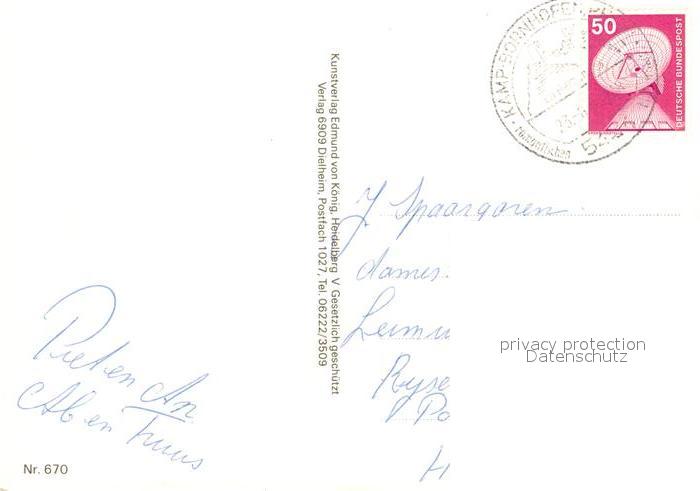 50
DEUTSCHE BUNDESPOST
KAMP-BORNHOFEN
Kunstverlag Edmund von König, Heidelberg V Gesetzlich geschützt
Verlag 6909 Dielheim, Postfach 1027, Tel. 06222/3509
J Spaargaren
dames.
Ryse
Po
H
privacy protection
Datenschutz
Piet en An
Ab en Truus
Nr. 670